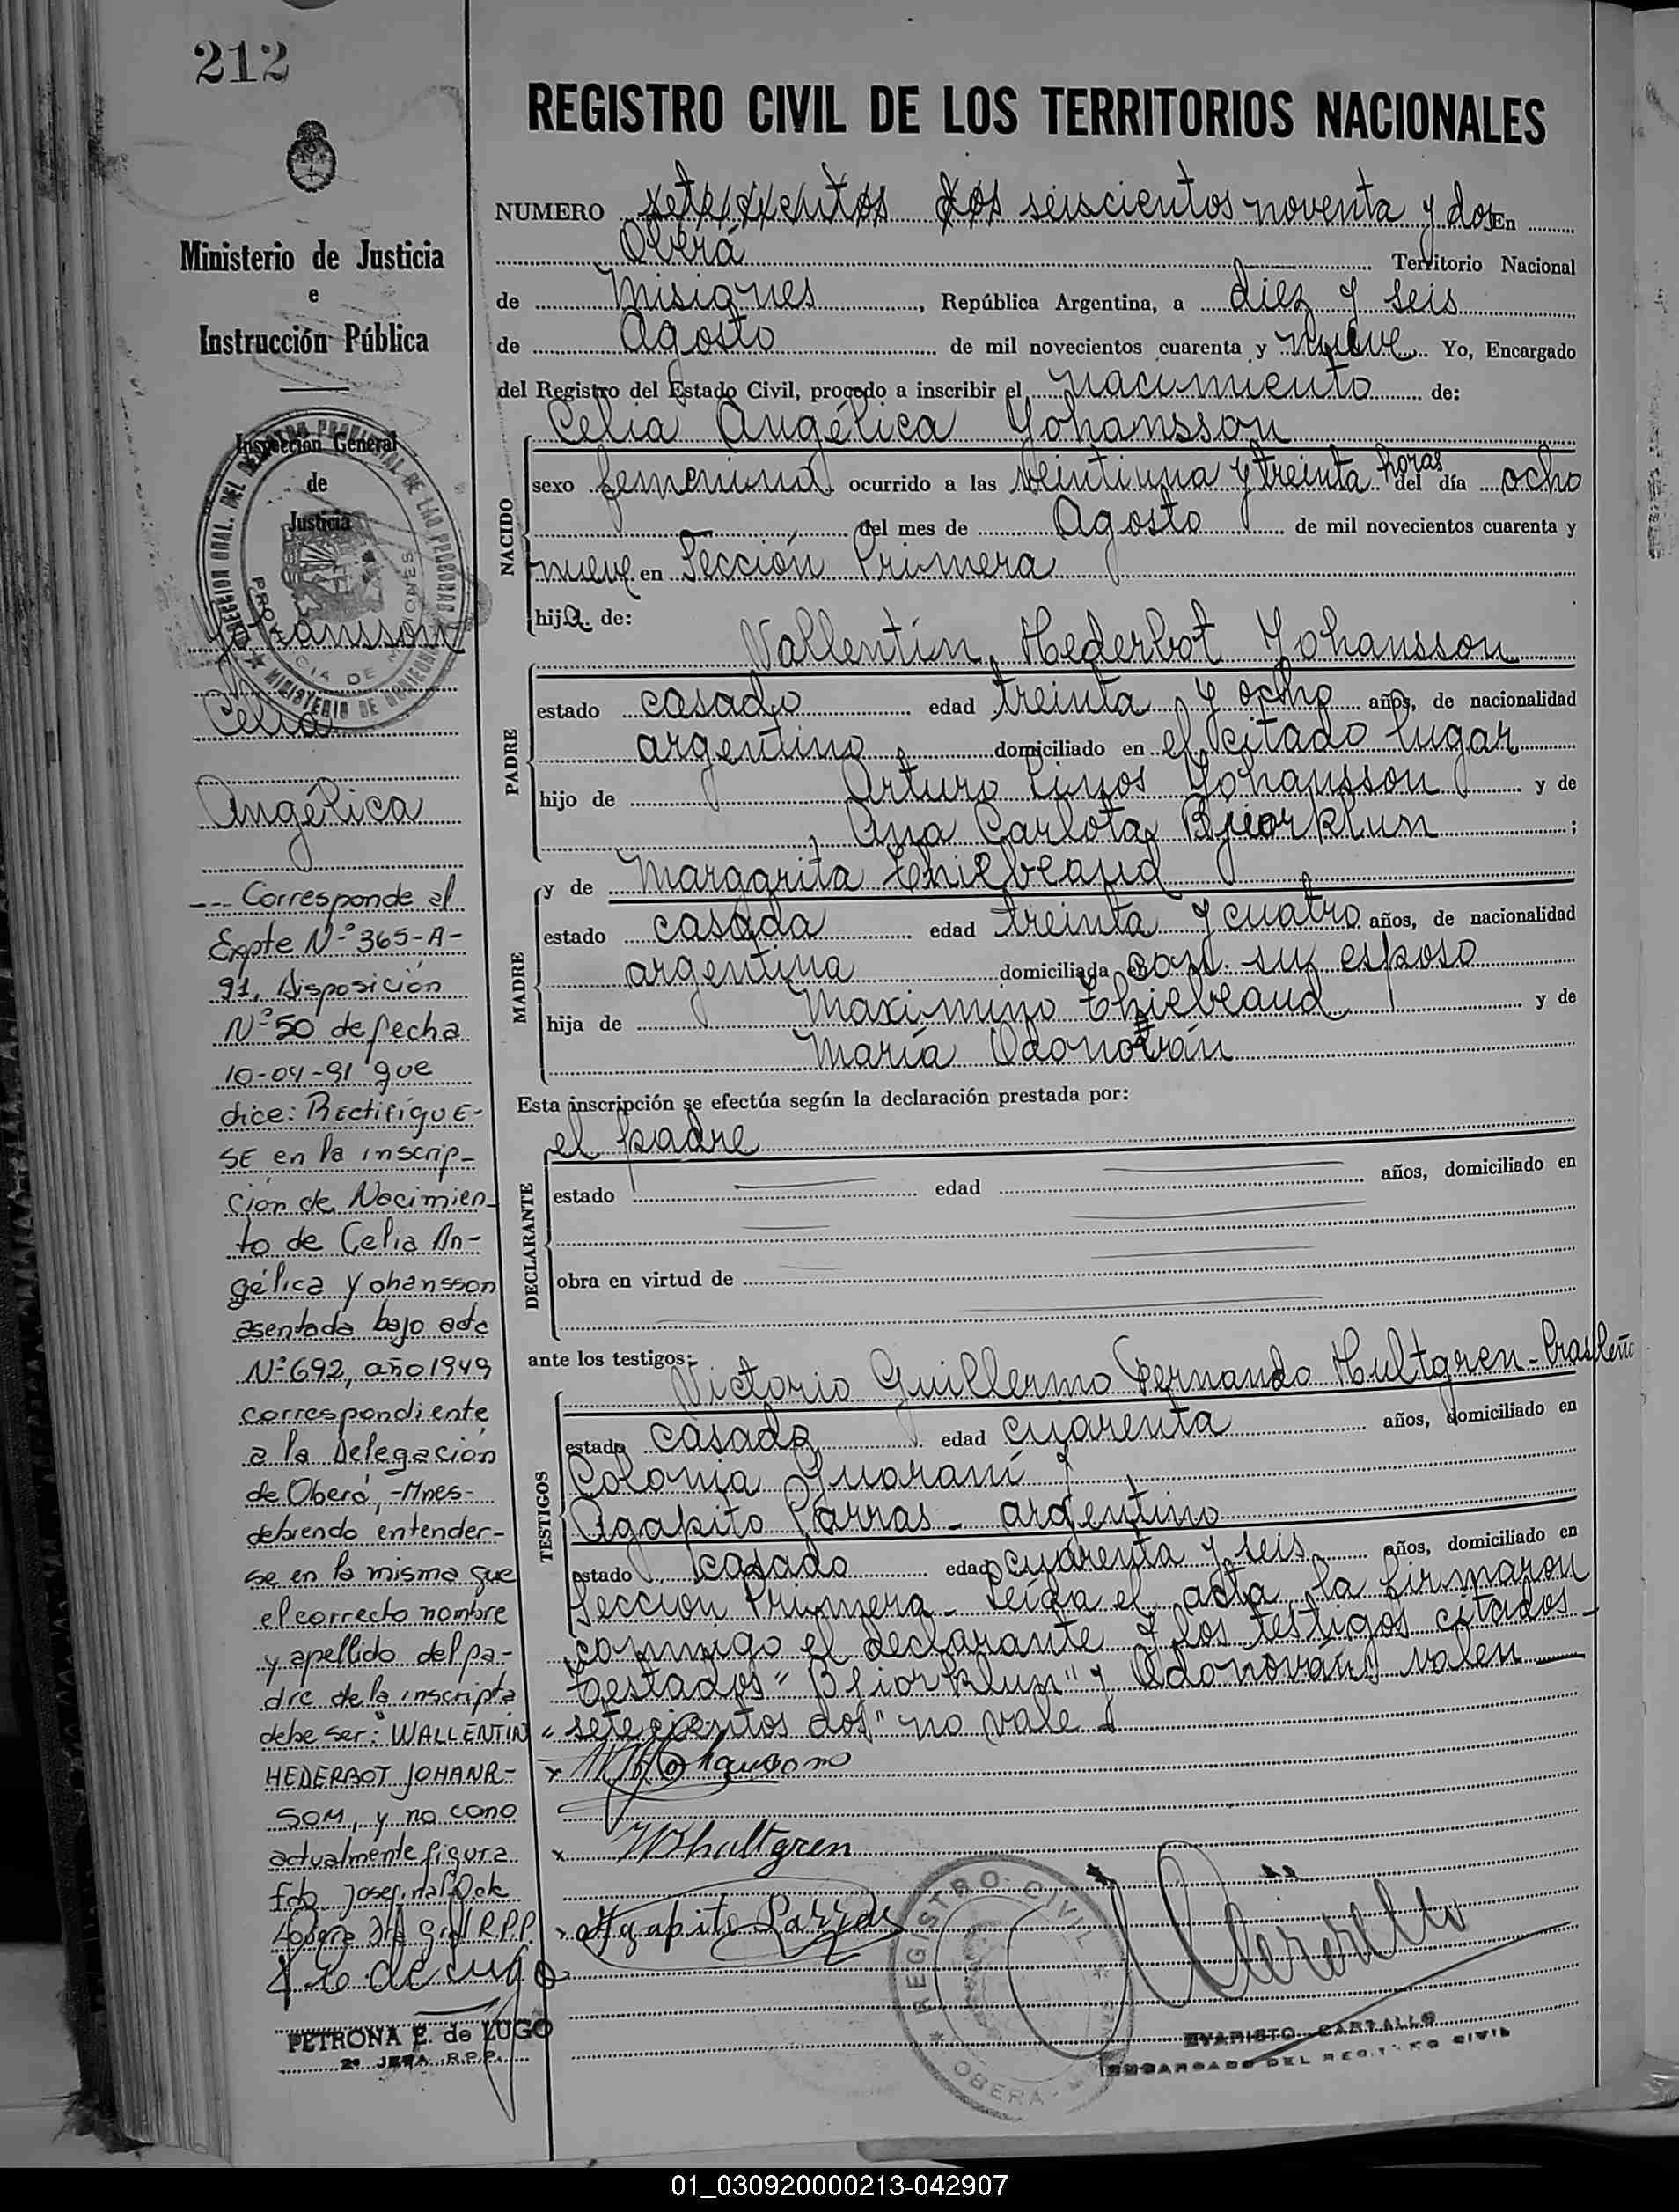 212
REGISTRO CIVIL DE LOS TERRITORIOS NACIONALES
Ministerio de Justicia
e
Instrucción Pública
Inspección General
de
Justicia
Johansson
Celia
Angélica
--- Corresponde al
Expte Nº 365-A-
91, Disposición
Nº 50 de fecha
10-04-91 que
dice: Rectifíque-
se en la inscrip-
ción de Nacimien-
to de Celia An-
gélica Yohansson
asentada bajo acta
Nº 692, año 1949
correspondiente
a la Delegación
de Oberá, -Mnes-
debiendo entender-
se en la misma que
el correcto nombre
y apellido del pa-
dre de la inscripta
debe ser: WALLENTIN
HEDERBOT JOHANR-
SOM, y no como
actualmente figura
fdo. Josefina
R.P.P.
de Lugo
PETRONA E. de LUGO
2º JEFA R.P.P.
NUMERO setecientos dos seiscientos noventa y dos En
Oberá Territorio Nacional
de Misiones, República Argentina, a diez y seis
de Agosto de mil novecientos cuarenta y nueve Yo, Encargado
del Registro del Estado Civil, procedo a inscribir el nacimiento de:
Celia Angélica Yohansson
NACIDO
sexo femenino ocurrido a las veintiuna y treinta horas del día ocho
del mes de Agosto de mil novecientos cuarenta y
nueve en Sección Primera
hija de:
Vallentín Hederbot Yohansson
PADRE
estado casado edad treinta y ocho años, de nacionalidad
argentino domiciliado en el citado lugar
hijo de Arturo Linos Yohansson y de
Ana Carlota Bjiorklun;
y de Margarita Thiebeaud
MADRE
estado casada edad treinta y cuatro años, de nacionalidad
argentina domiciliada en con su esposo
hija de Maximino Thiebeaud y de
María Odonován
Esta inscripción se efectúa según la declaración prestada por:
el padre
DECLARANTE
estado edad años, domiciliado en
obra en virtud de
ante los testigos:
Victorio Guillermo Fernando Hultgren - brasileño
TESTIGOS
estado casado edad cuarenta años, domiciliado en
Colonia Guaraní y
Agapito Parras - argentino
estado casado edad cuarenta y seis años, domiciliado en
Sección Primera - Leída el acta, la firmaron
conmigo el declarante y los testigos citados -
Testados "Bjiorklun" y Odonován" valen
"setecientos dos" no vale
x
x Whultgren
x Agapito Parras
REGISTRO CIVIL
OBERA
EVARISTO CARVALLO
ENCARGADO DEL REGISTRO CIVIL
01_030920000213-042907